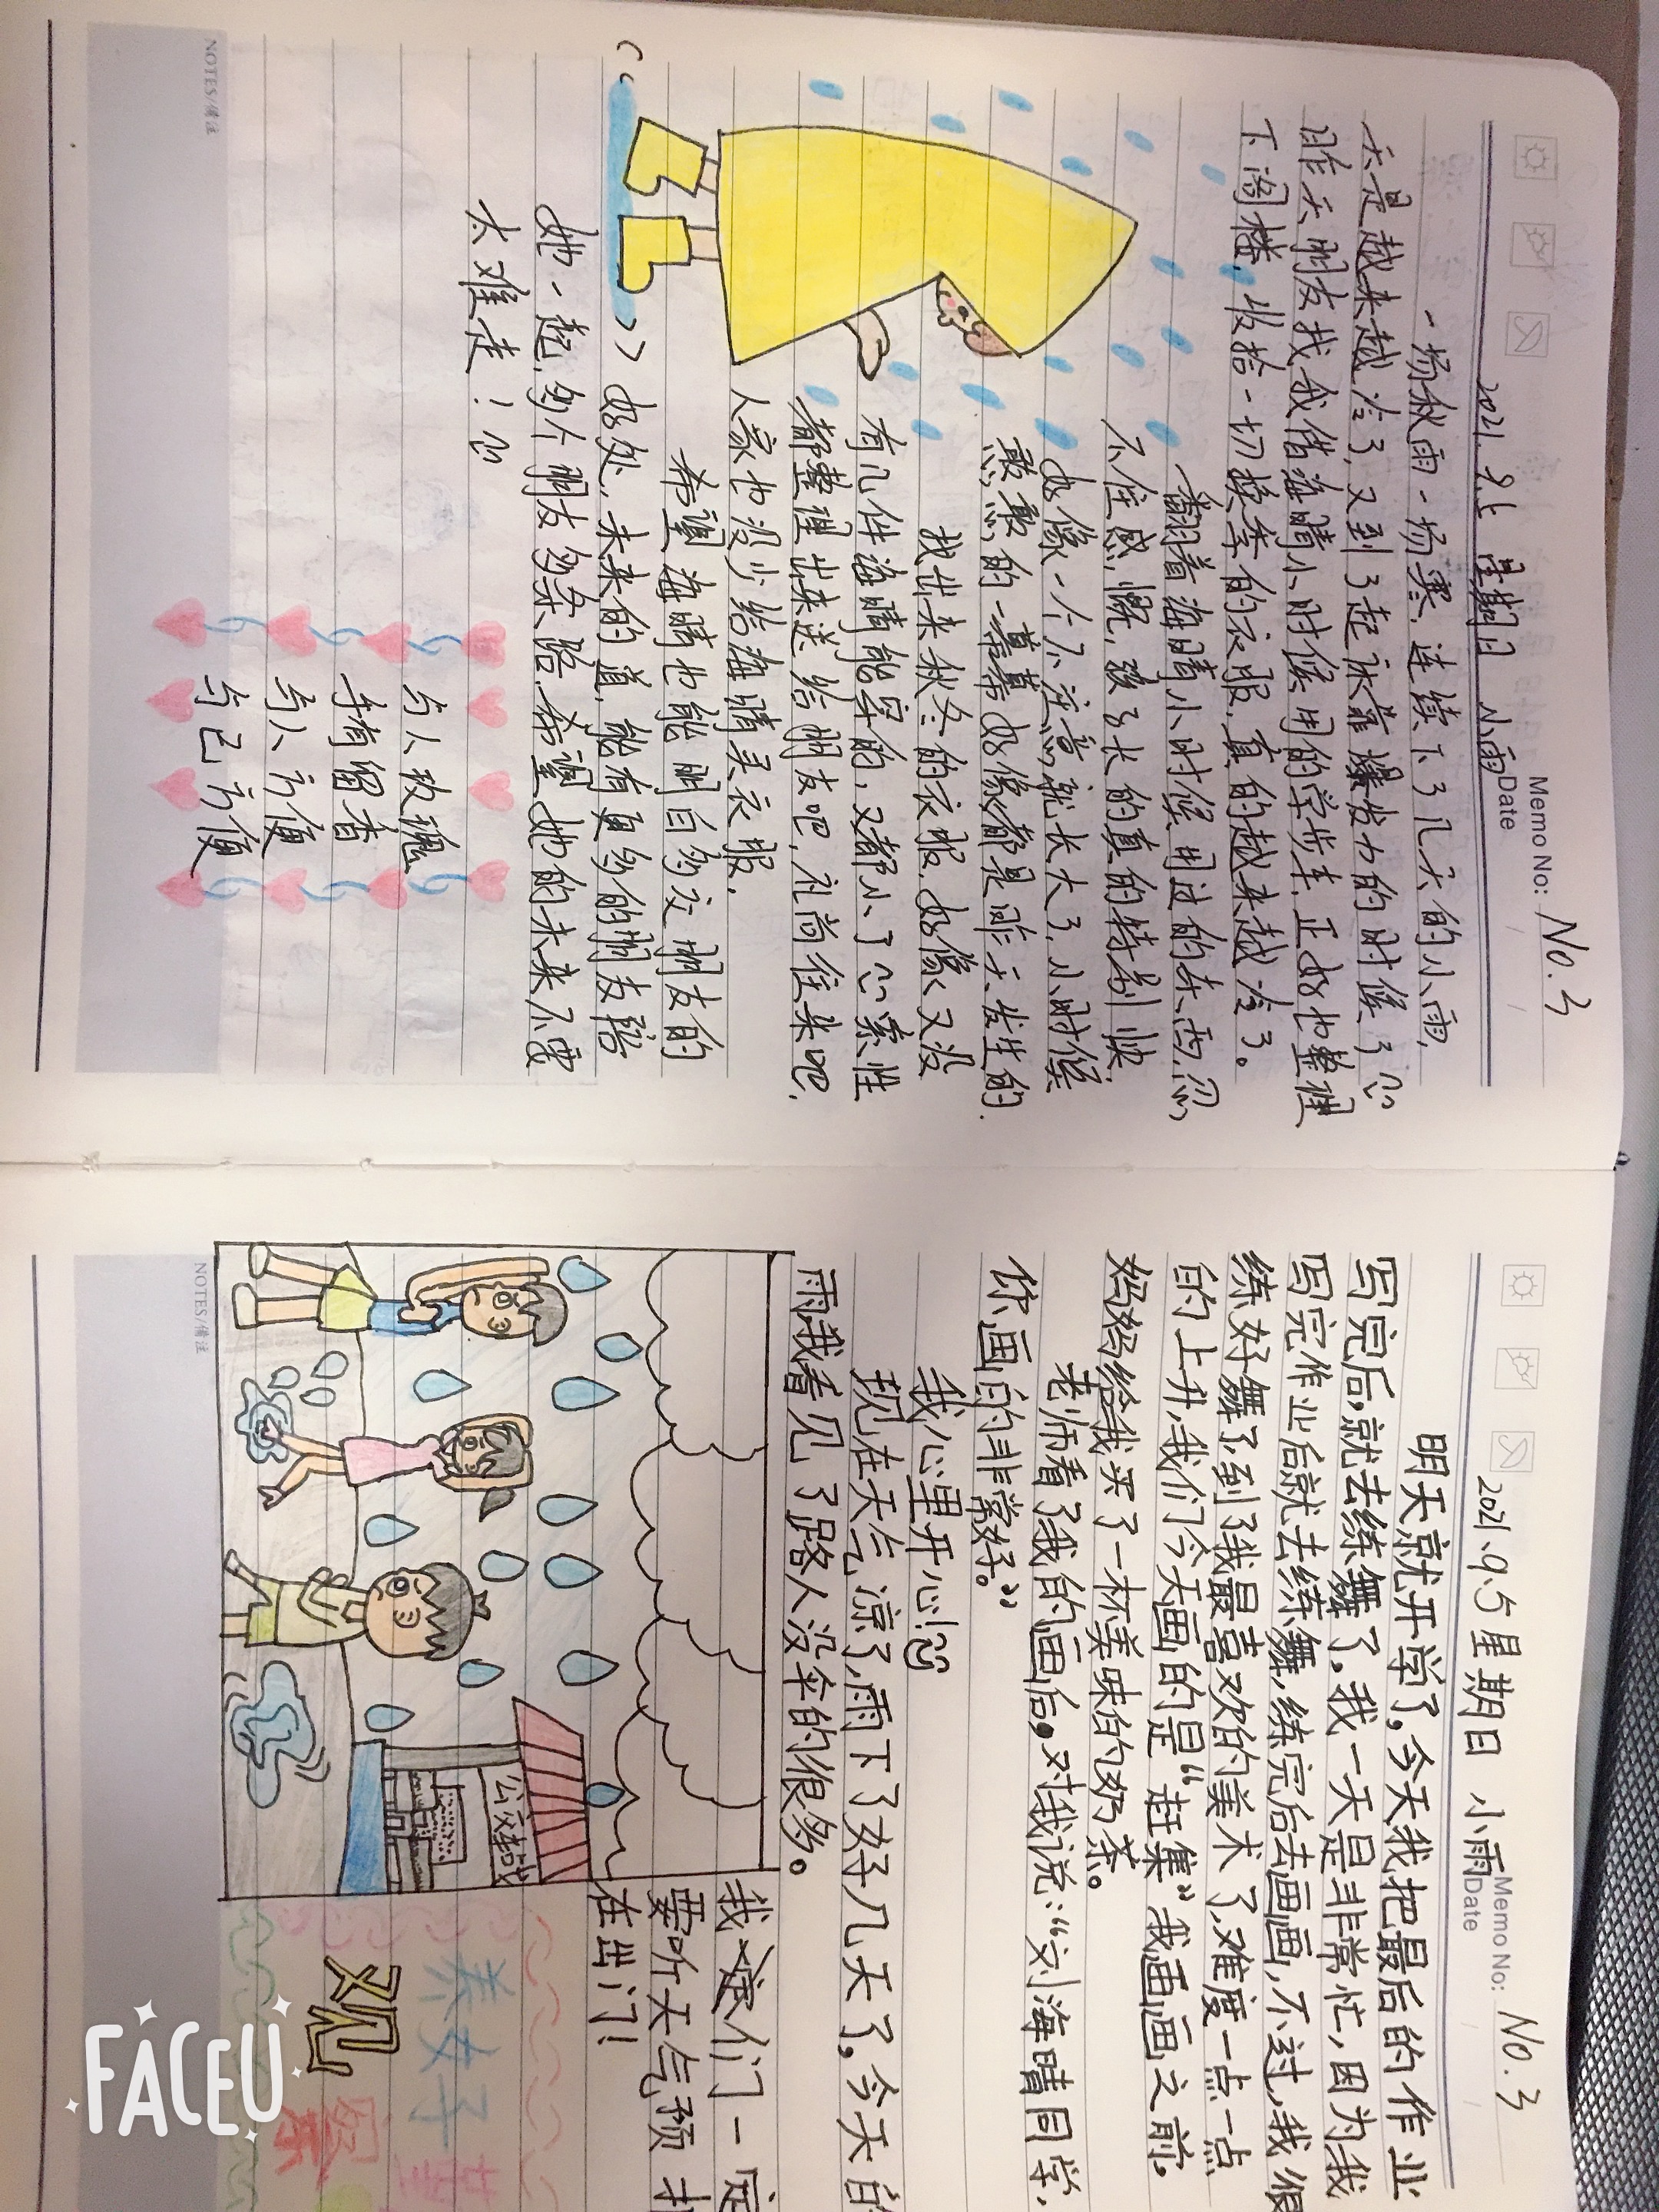 Memo No: No. 3
2021.9.5 星期日 小雨 Date
一场秋雨一场寒，连续下了几天的小雨，
天是越来越冷了，又到了起床靠爆发力的时候了
昨天朋友找我借海晴小时候用的学步车，正好也整理
下阁楼，收拾一切换季的衣服，真的越来越冷了。
翻着海晴小时候用过的东西，忍
不住感慨，孩子长的真的特别快
好像一个不注意就长大了，小时候
憨憨的一幕幕好像都是昨天发生的.
找出来秋冬的衣服，好像又没
有几件海晴能穿的，又都小了 索性
都整理出来送给朋友吧，礼尚往来吧，
人家也没少给海晴买衣服，
希望海晴也能明白多交朋友的
好处，未来的道，能有更多的朋友陪
她一起，多个朋友多条路，希望她的未来不要
太难走！
与人玫瑰
手有留香
与人方便
与己方便
NOTES/備注
Memo No: No. 3
2021.9.5 星期日 小雨 Date
明天就开学了，今天我把最后的作业
写完后，就去练舞了，我一天是非常忙，因为我
写完作业后就去练舞，练完后去画画，不过，我很
练好舞了，到了我最喜欢的美术了，难度一点一点
的上升，我们今天画的是“赶集”我画画之前，
妈妈给我买了一杯美味的奶茶。
老师看了我的画后，对我说：“刘海晴同学，
你画的非常好。”
我心里开心！
现在天气凉了，雨下了好几天了，今天的
雨我看见了路人没伞的很多。
我们一定
要听天气预报
在出门！
公交车站
观
NOTES/備注
FACEU